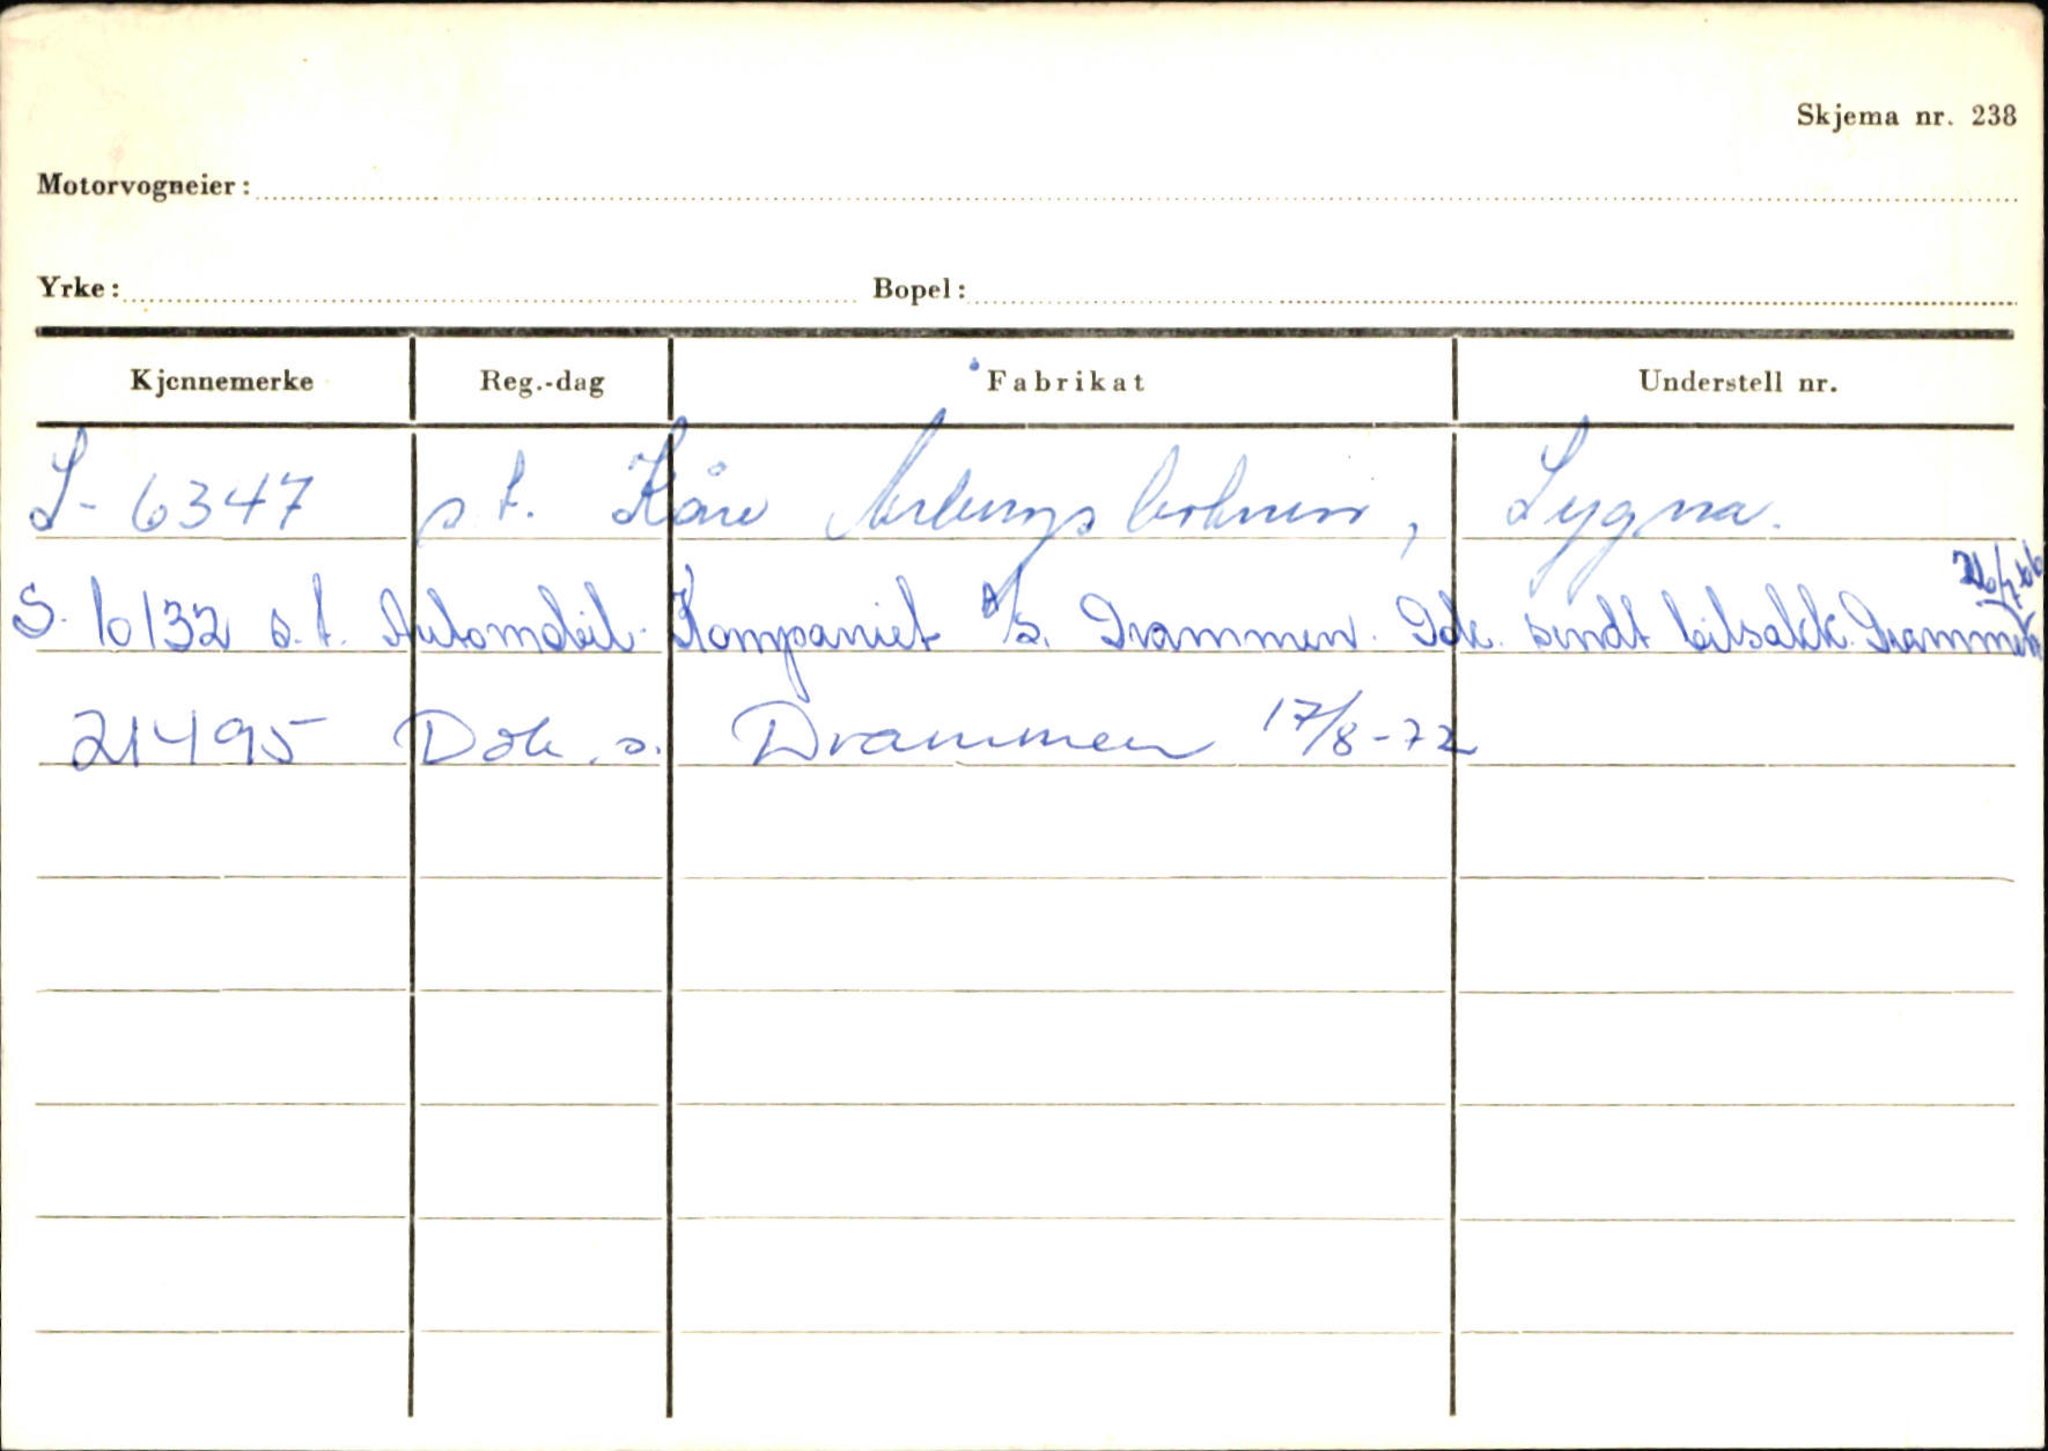 Skjema nr. 238
Motorvogneier:
Yrke: Bopel:
Kjennemerke Reg.-dag Fabrikat Understell nr.
S-6347 s.t. Kåre Lygna.
26/7-66
S. 6132 s.t. Automobil-Kompaniet A/S. Drammen. Dok. sendt bilsakk. Drammen
21495 Dok. s. Drammen 17/8-72